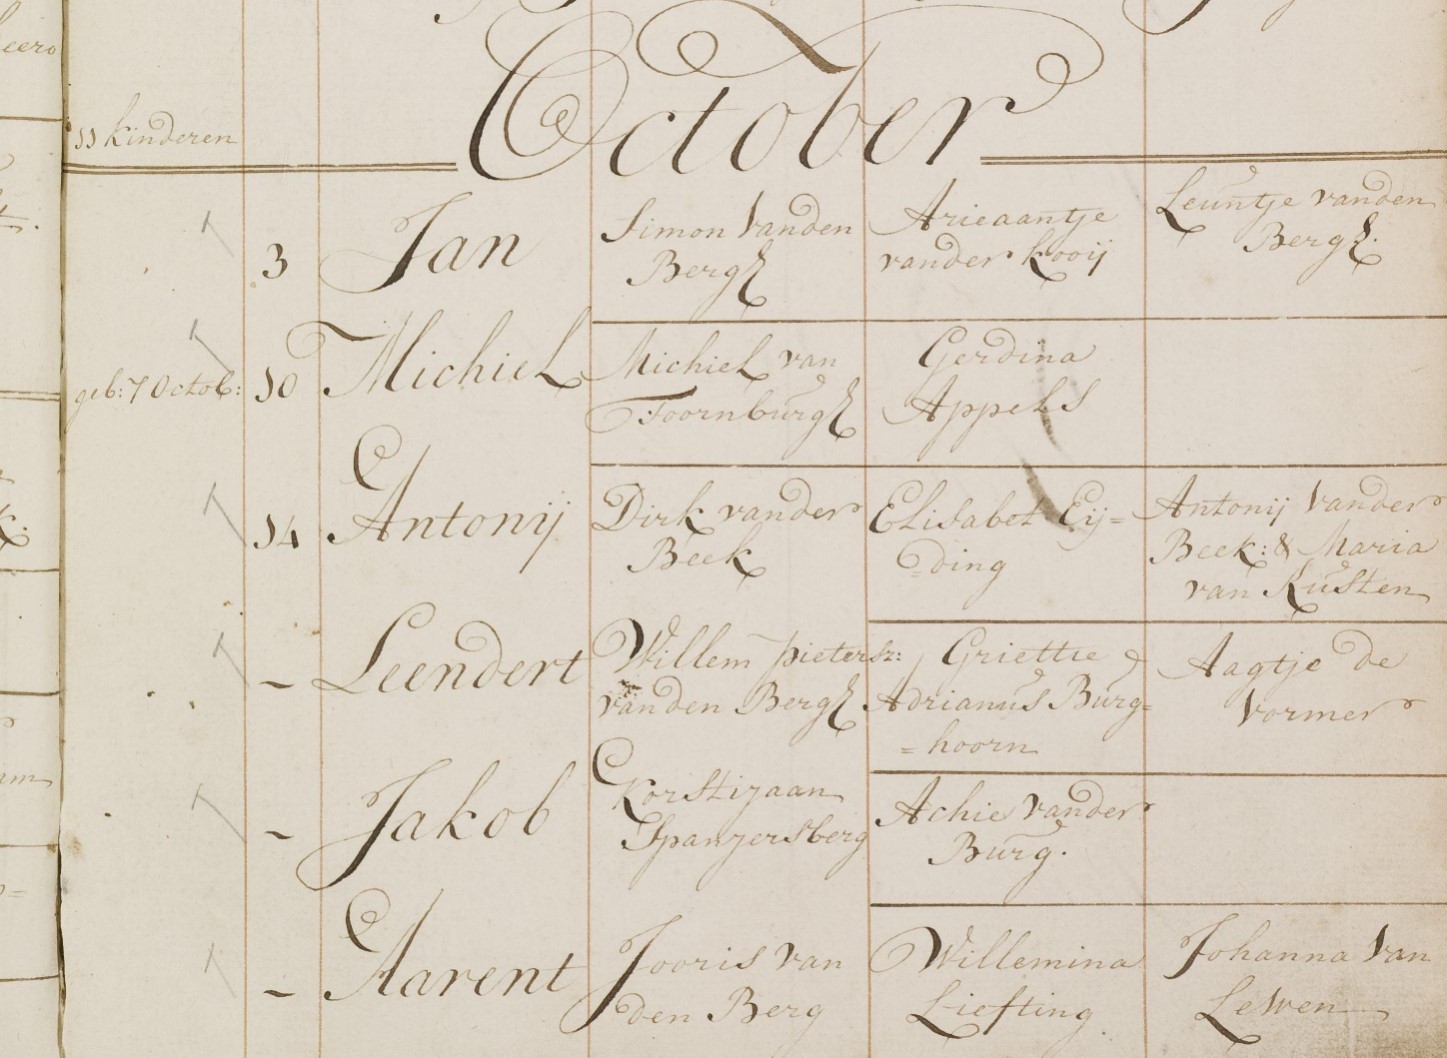 October
11 kinderen
3 Jan
Simon vanden
Bergh
Arieaantje
vander Kooij
Leuntje vanden
Bergh.
geb: 7 Octob: 10 Michiel
Michiel van
Toornburgh
Gerdina
Appels
14 Antonij
Dirk vander
Beek
Elisabet Eij=
=ding
Antonij vander
Beek: & Maria
van Rusten
- Leendert
Willem pietersz:
vanden Bergh
Griettie
Adrianus Burg=
=hoorn
Aagtje de
vormer
- Jakob
Korstijaan
Spanjersberg
Achie vander
Burg.
- Aarent
Jooris van
den Berg
Willemina
Liefting
Johanna van
Lewen